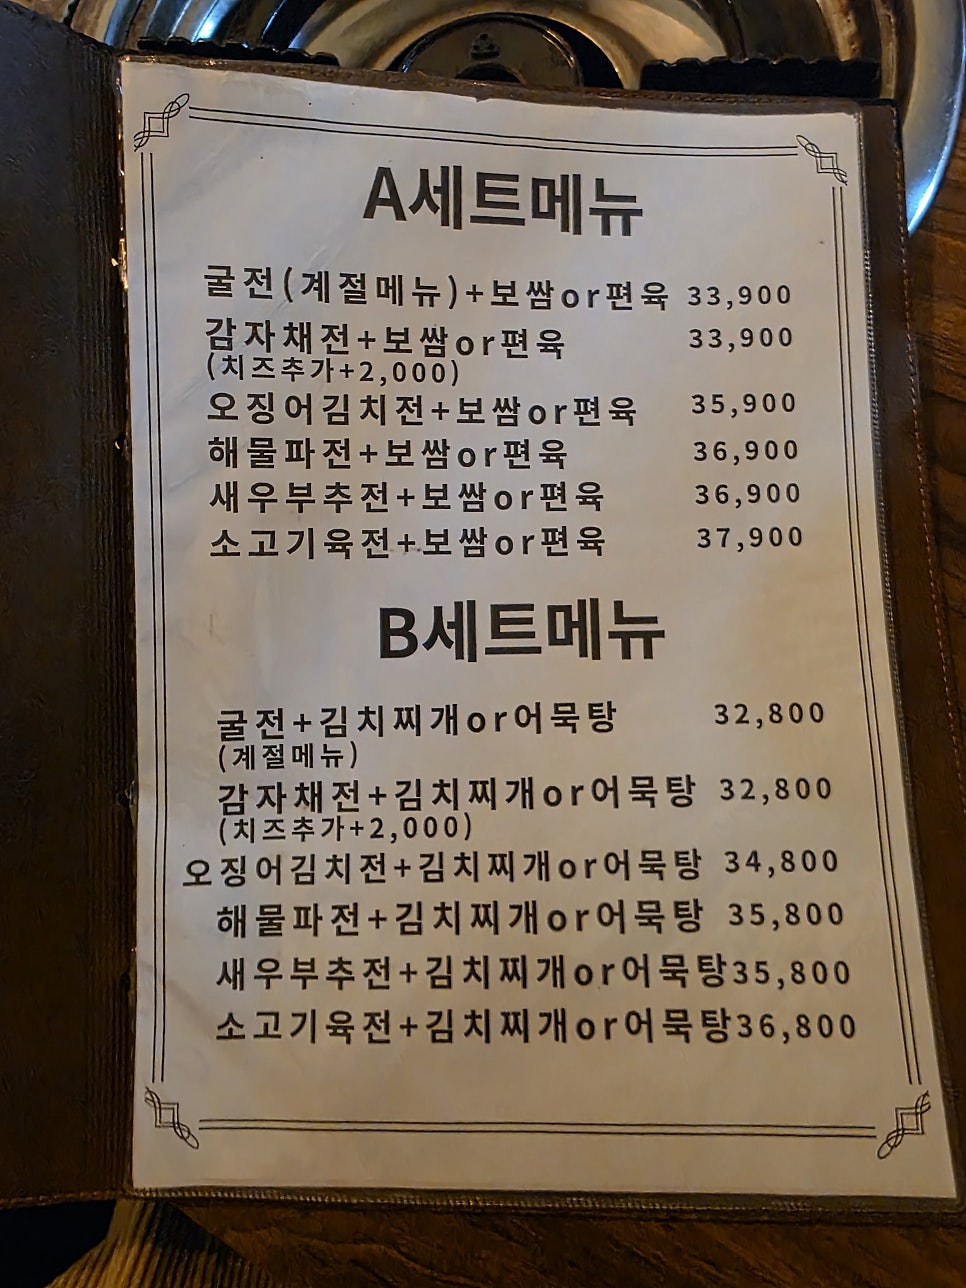 A세트메뉴
굴전(계절메뉴)+보쌈or편육 33,900
감자채전+보쌈or편육 33,900
(치즈추가+2,000)
오징어김치전+보쌈or편육 35,900
해물파전+보쌈or편육 36,900
새우부추전+보쌈or편육 36,900
소고기육전+보쌈or편육 37,900
B세트메뉴
굴전+김치찌개or어묵탕 32,800
(계절메뉴)
감자채전+김치찌개or어묵탕 32,800
(치즈추가+2,000)
오징어김치전+김치찌개or어묵탕 34,800
해물파전+김치찌개or어묵탕 35,800
새우부추전+김치찌개or어묵탕35,800
소고기육전+김치찌개or어묵탕36,800